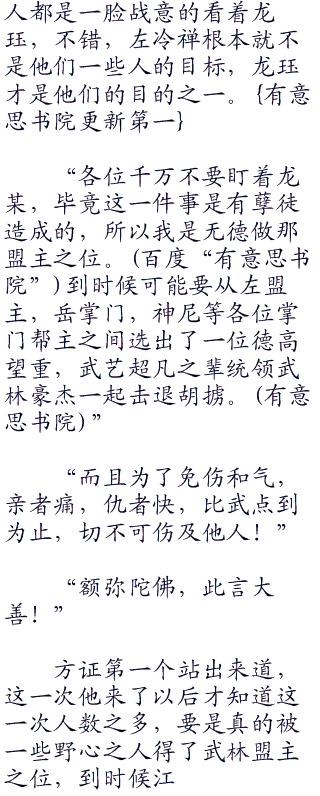 人都是一脸战意的看着龙
珏，不错，左冷禅根本就不
是他们一些人的目标，龙珏
才是他们的目的之一。{有意
思书院更新第一}
“各位千万不要盯着龙
某，毕竟这一件事是有孽徒
造成的，所以我是无德做那
盟主之位。(百度“有意思书
院”)到时候可能要从左盟
主，岳掌门，神尼等各位掌
门帮主之间选出了一位德高
望重，武艺超凡之辈统领武
林豪杰一起击退胡掳。(有意
思书院)”
“而且为了免伤和气，
亲者痛，仇者快，比武点到
为止，切不可伤及他人！”
“额弥陀佛，此言大
善！”
方证第一个站出来道，
这一次他来了以后才知道这
一次人数之多，要是真的被
一些野心之人得了武林盟主
之位，到时候江